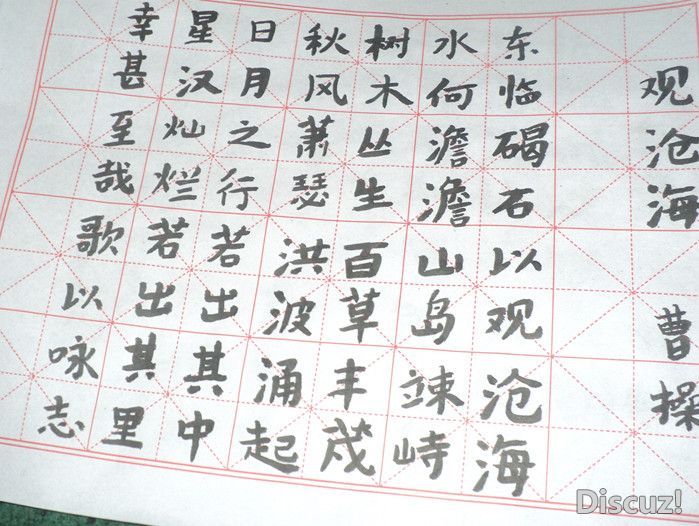 观沧海 曹操
东临碣石以观沧海
水何澹澹山岛竦峙
树木丛生百草丰茂
秋风萧瑟洪波涌起
日月之行若出其中
星汉灿烂若出其里
幸甚至哉歌以咏志
Discuz!